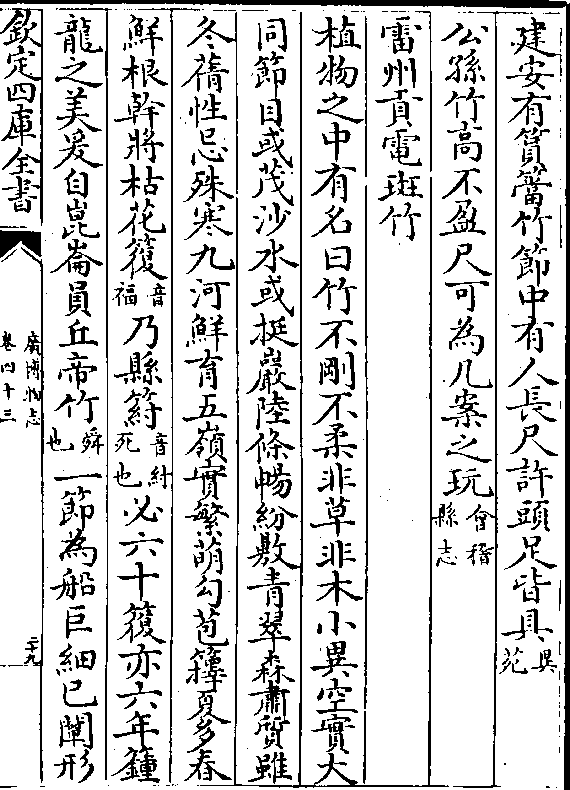 建安有篔簹竹節中有人長尺許頭足皆具異苑
公孫竹髙不盈尺可為几案之玩會稽縣志
雷州貢雷斑竹
植物之中有名曰竹不剛不柔非草非木小異空實大
同節目或茂沙水或挺巖陸條暢紛敷青翠森肅質雖
冬蒨性忌殊寒九河鮮育五嶺實繁萌勾苞籜夏多春
鮮根幹將枯花𥳇音福乃縣䈙音紂死也必六十𥳇亦六年籦
龍之美爰自崑崙員丘帝竹舜也一節為船巨細已聞形
欽定四庫全書
廣博物志
卷四十三
二十九